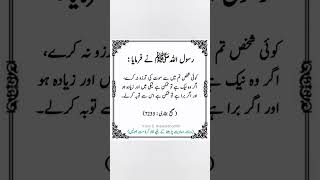 رسول اللہ ﷺ نے فرمایا:
کوئی شخص تم میں سے موت کی آرزو نہ کرے،
اگر وہ نیک ہے تو ممکن ہے نیکی میں اور زیادہ ہو
اور اگر برا ہے تو ممکن ہے اس سے توبہ کرلے۔
(صحیح بخاری: 7235)